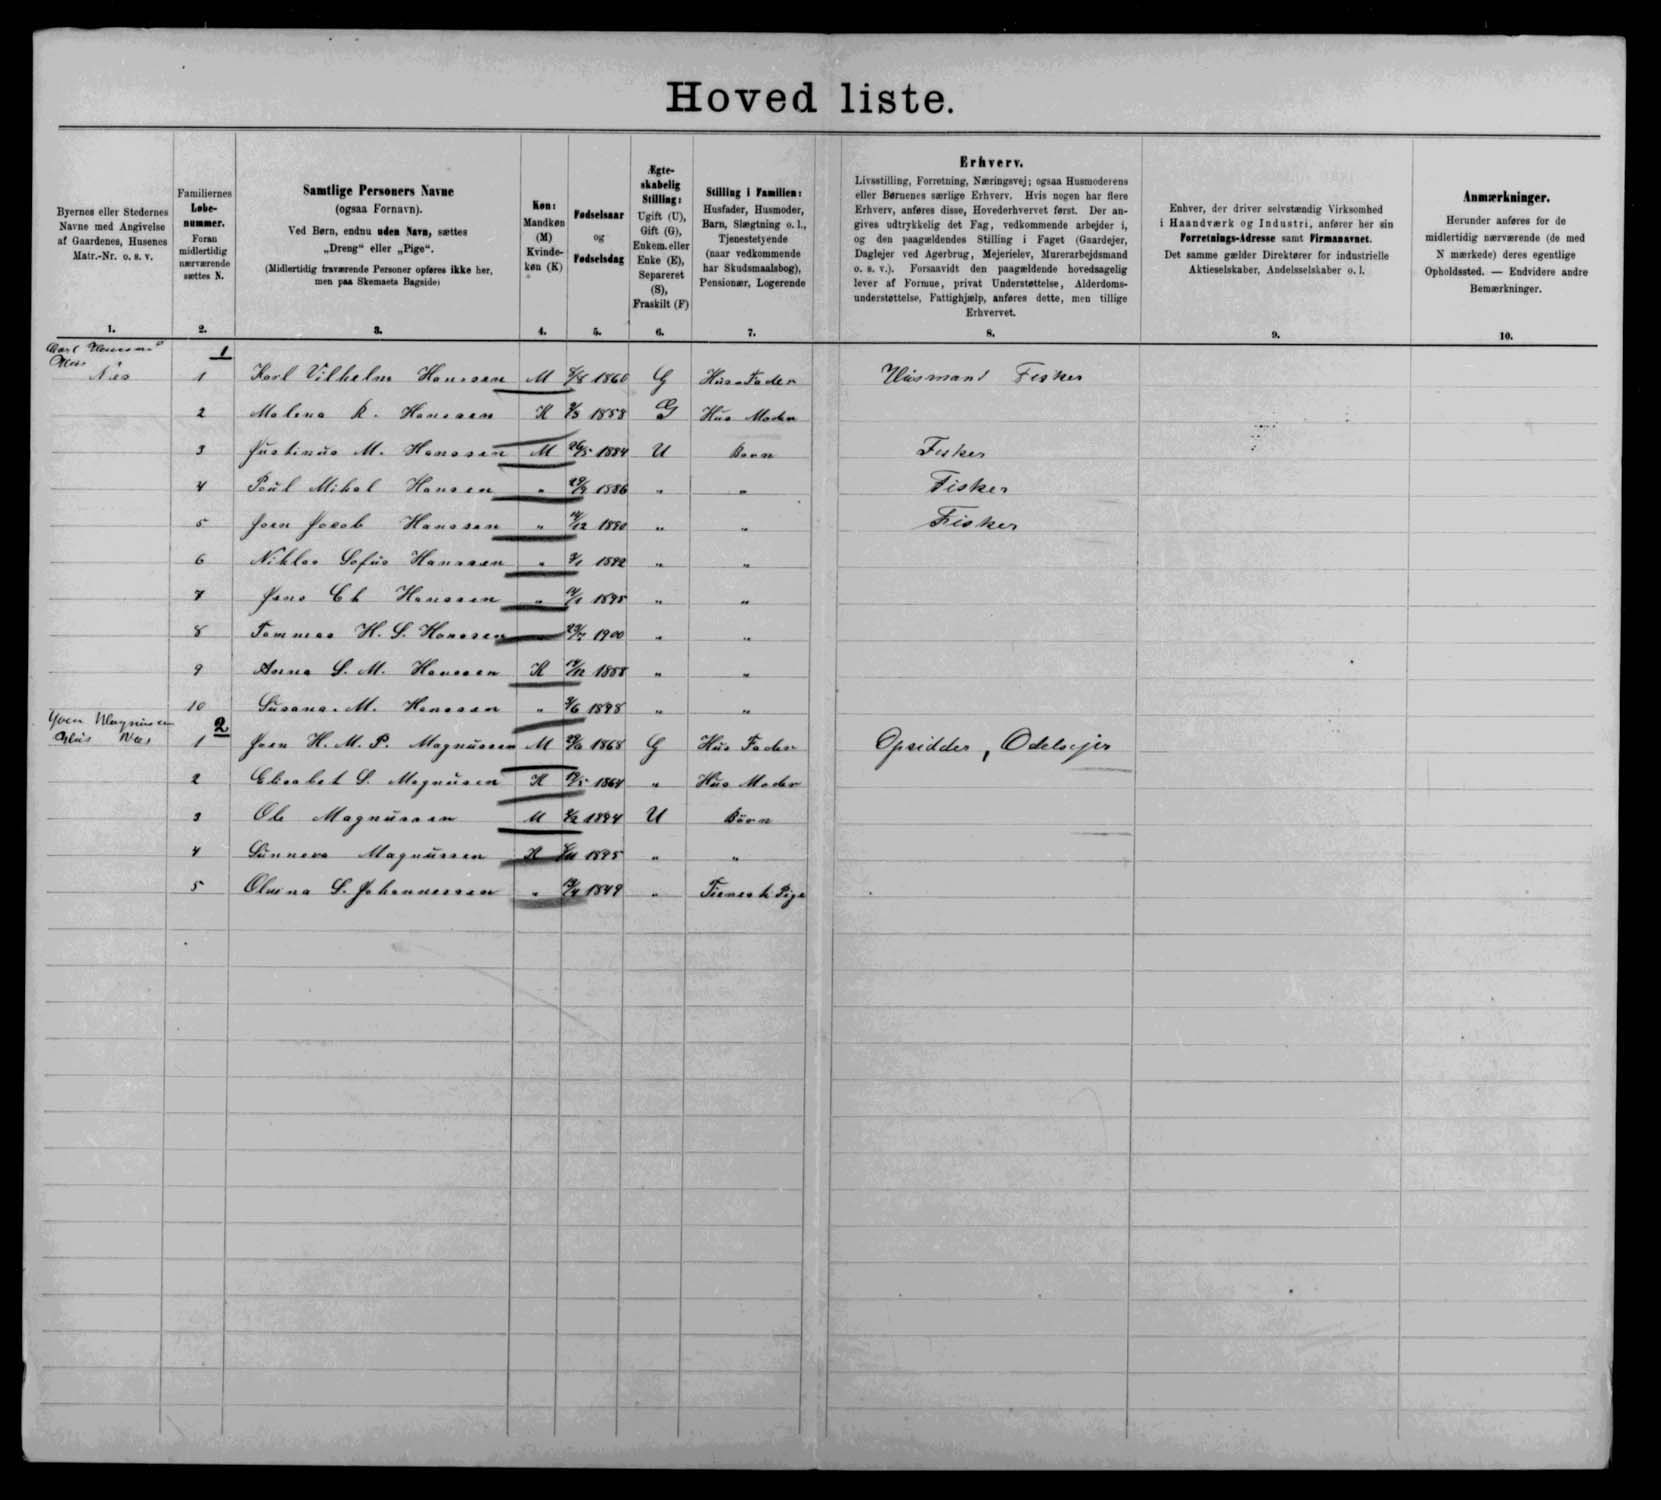 Hoved liste.
Byernes eller Stedernes
Navne med Angivelse
af Gaardenes, Husenes
Matr.-Nr. o. s. v.
1.
Familiernes
Løbe-
nummer.
Foran
midlertidig
nærværende
sættes N.
2.
Samtlige Personers Navne
(ogsaa Fornavn).
Ved Børn, endnu uden Navn, sættes
„Dreng“ eller „Pige“.
(Midlertidig fraværende Personer opføres ikke her,
men paa Skemaets Bagside)
3.
Køn:
Mandkøn
(M)
Kvinde-
køn (K)
4.
Fødselsaar
og
Fødselsdag
5.
Ægte-
skabelig
Stilling:
Ugift (U),
Gift (G),
Enkem. eller
Enke (E),
Separeret
(S),
Fraskilt (F)
6.
Stilling i Familien:
Husfader, Husmoder,
Barn, Slægtning o. l.,
Tjenestetyende
(naar vedkommende
har Skudsmaalsbog),
Pensionær, Logerende
7.
Erhverv.
Livsstilling, Forretning, Næringsvej; ogsaa Husmoderens
eller Børnenes særlige Erhverv. Hvis nogen har flere
Erhverv, anføres disse, Hovederhvervet først. Der an-
gives udtrykkelig det Fag, vedkommende arbejder i,
og den paagældendes Stilling i Faget (Gaardejer,
Daglejer ved Agerbrug, Mejerielev, Murerarbejdsmand
o. s. v.). Forsaavidt den paagældende hovedsagelig
lever af Formue, privat Understøttelse, Alderdoms-
understøttelse, Fattighjælp, anføres dette, men tillige
Erhvervet.
8.
Enhver, der driver selvstændig Virksomhed
i Haandværk og Industri, anfører her sin
Forretnings-Adresse samt Firmanavnet.
Det samme gælder Direktører for industrielle
Aktieselskaber, Andelsselskaber o. l.
9.
Anmærkninger.
Herunder anføres for de
midlertidig nærværende (de med
N mærkede) deres egentlige
Opholdssted. — Endvidere andre
Bemærkninger.
10.
1
Næs 1 Karl Vilhelm Hanssen M 1860 G Hus Fader Husmand Fisker
2 Malena K. Hanssen K 1858 G Hus Moder
3 Justinus M. Hanssen M 26/5 1884 U Børn Fisker
4 Poul Mikal Hansen " 1886 " " Fisker
5 Joen Jacob Hanssen " 1890 " " Fisker
6 Niklas Sofus Hanssen " 1892 " "
7 Jens Ch Hanssen " 1895 " "
8 Tommas H. S. Hanssen 1900 " "
9 Anna S. M. Hanssen K 1888 " "
10 Susana. M. Hanssen " 1898 " "
Joen Magnussen 2
Hus Næs 1 Joen H. M. P. Magnussen M 1868 G Hus Fader Opsidder, Odelsejer
2 Elsabet S. Magnusen K 1864 " Hus Moder
3 Ole Magnussen M 1894 U Børn
4 Sunneva Magnussen K 1895 " "
5 Olvina S. Johannessen " 1849 " Tienest Pige